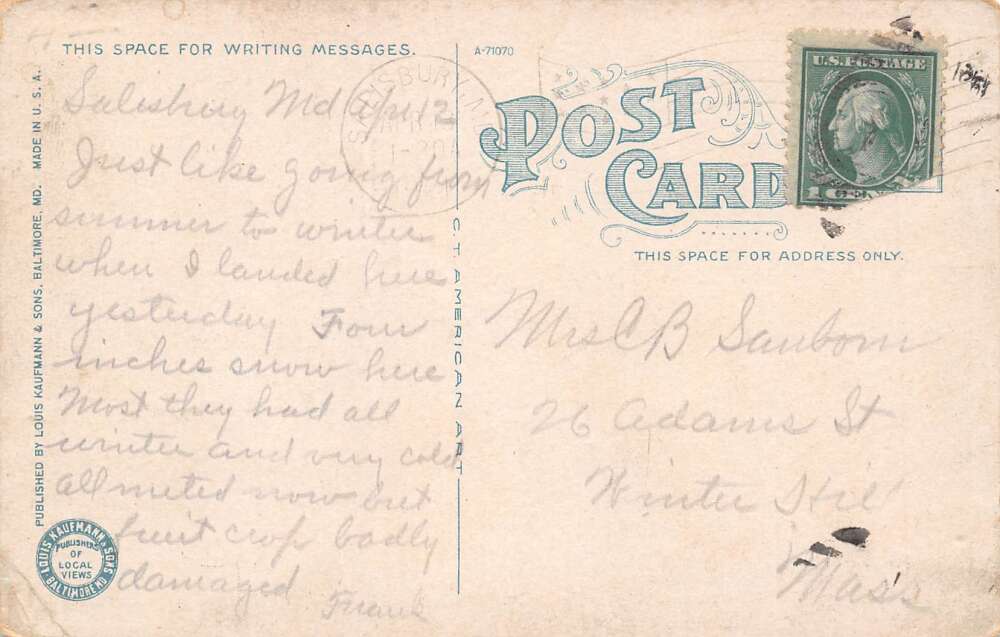 THIS SPACE FOR WRITING MESSAGES.
Salesbury Md Apr 12
Just like going from
summer to winter
when I landed here
yesterday Four
inches snow here
Most they had all
winter and very cold
all meted now but
fruit crop badly
damaged Frank
PUBLISHED BY LOUIS KAUFMANN & SONS, BALTIMORE, MD. MADE IN U.S.A.
LOUIS KAUFMANN & SONS
BALTIMORE MD
PUBLISHERS
OF
LOCAL
VIEWS
C.T. AMERICAN ART
A-71070
POST
CARD
THIS SPACE FOR ADDRESS ONLY.
U.S. POSTAGE
1
Mrs C B Sanborn
26 Adams St
Winter Hil
Mass